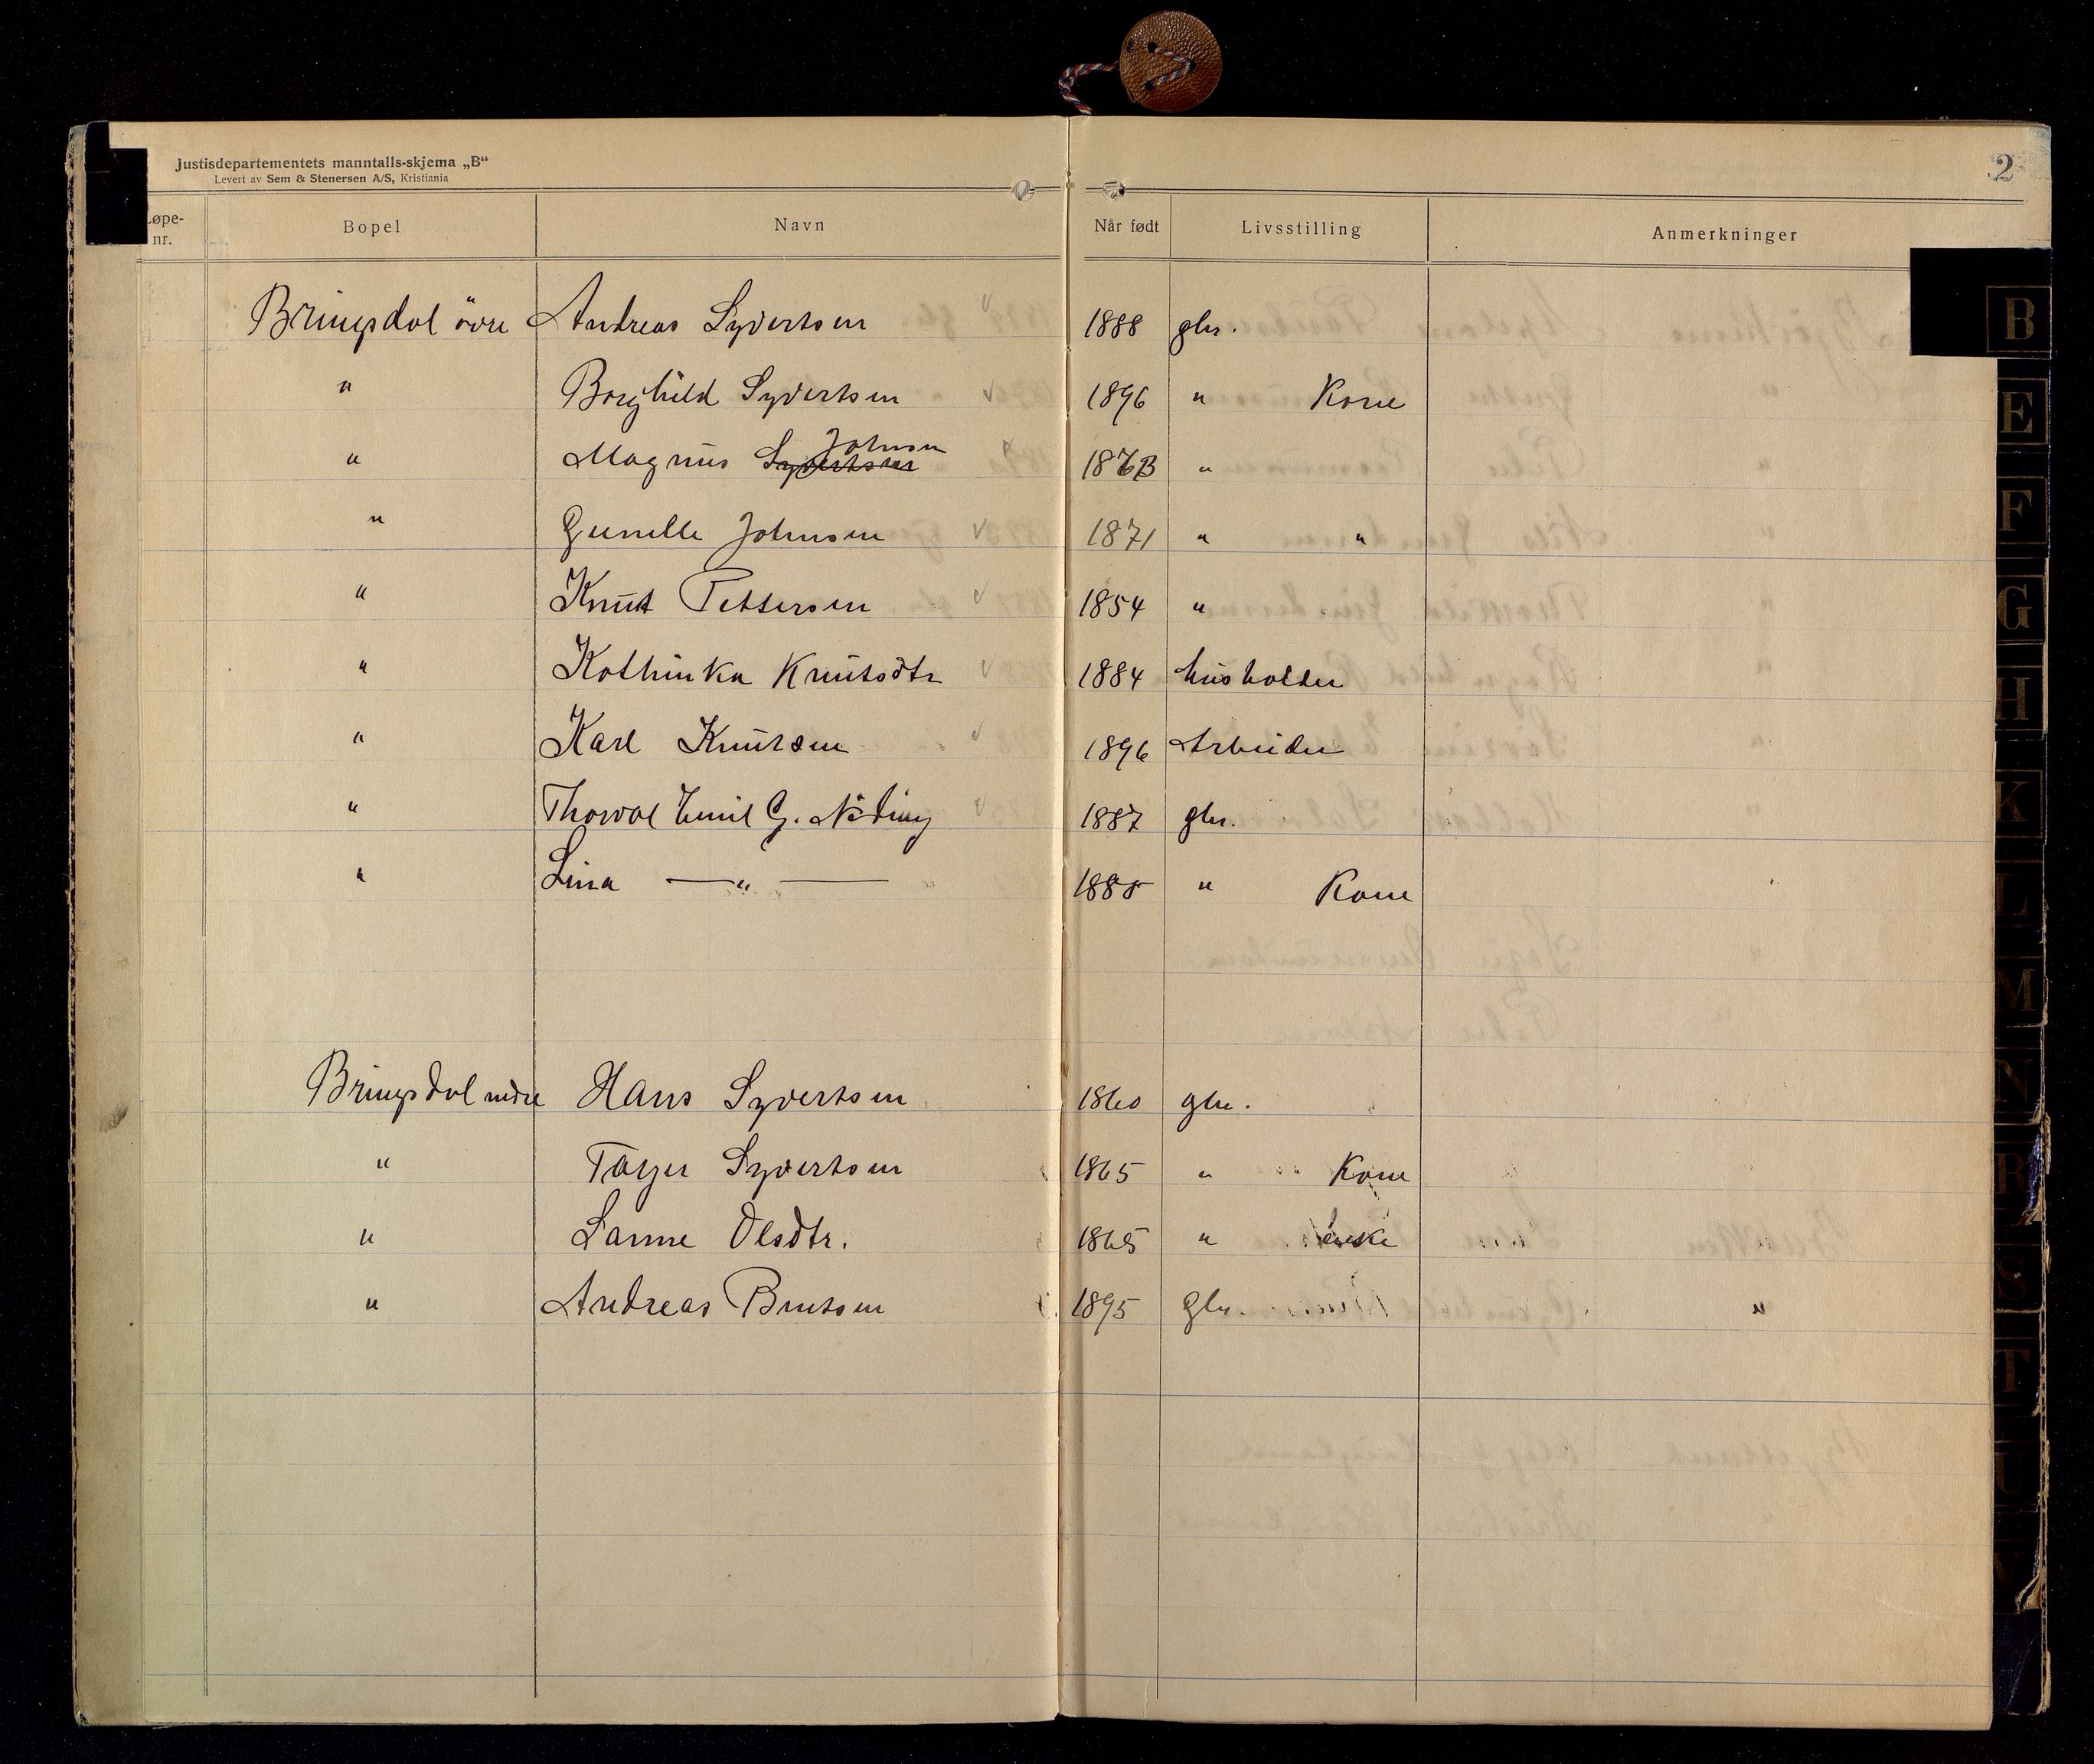 Justisdepartementets manntalls-skjema „B“
Levert av Sem & Stenersen A/S, Kristiania
2
Løpe-nr. Bopel Navn Når født Livsstilling Anmerkninger
Bringsdal övre Andreas Syvertsen 1888 gbr.
" Borghild Syvertsen 1896 " Kone
" Magnus Syvertsen Johnsen "
" Gunelle Johnsen 1871 " "
" Knut Tettersen 1854 "
" Kathinka Knutsdtr 1884 husholder
" Karl Knutsen 1896 Arbeider
" Thorval Emil G. Nöding 1887 gbr.
" Lina —"— 1885 " Kone
Bringsdal nedre Hans Syvertsen 1860 gbr.
" Tarjer Syvertsen 1865 " Kone
" Lanne Olsdtr. 1865 " enke
" Andreas Bentsen 1895 gbr.
B
E
F
G
H
K
L
M
N
R
S
T
U
V